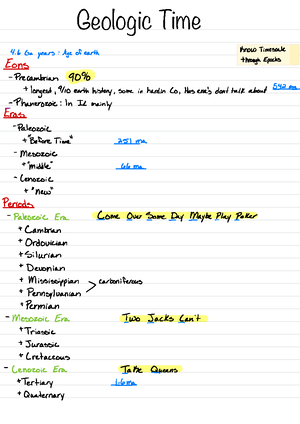 Geologic Time
4.6 Ga years: Age of earth
Know Timescale
through Epochs
Eons
- Precambrian 90%
+ longest, 9/10 earth history, some in Co, Has era's dont talk about 542 ma
- Phanerozoic: In IL mainly
Eras
- Paleozoic
+ "Before Time" 251 ma
- Mesozoic
+ "middle" 66 ma
- Cenozoic
+ "New"
Periods
- Paleozoic Era Come Over Some Day Maybe Play Poker
+ Cambrian
+ Ordovician
+ Silurian
+ Devonian
+ Mississippian
+ Pennsylvanian > carboniferous
+ Permian
- Mesozoic Era Two Jacks Can't
+ Triassic
+ Jurassic
+ Cretaceous
- Cenozoic Era Take Queens
+ Tertiary 1.6 ma
+ Quaternary